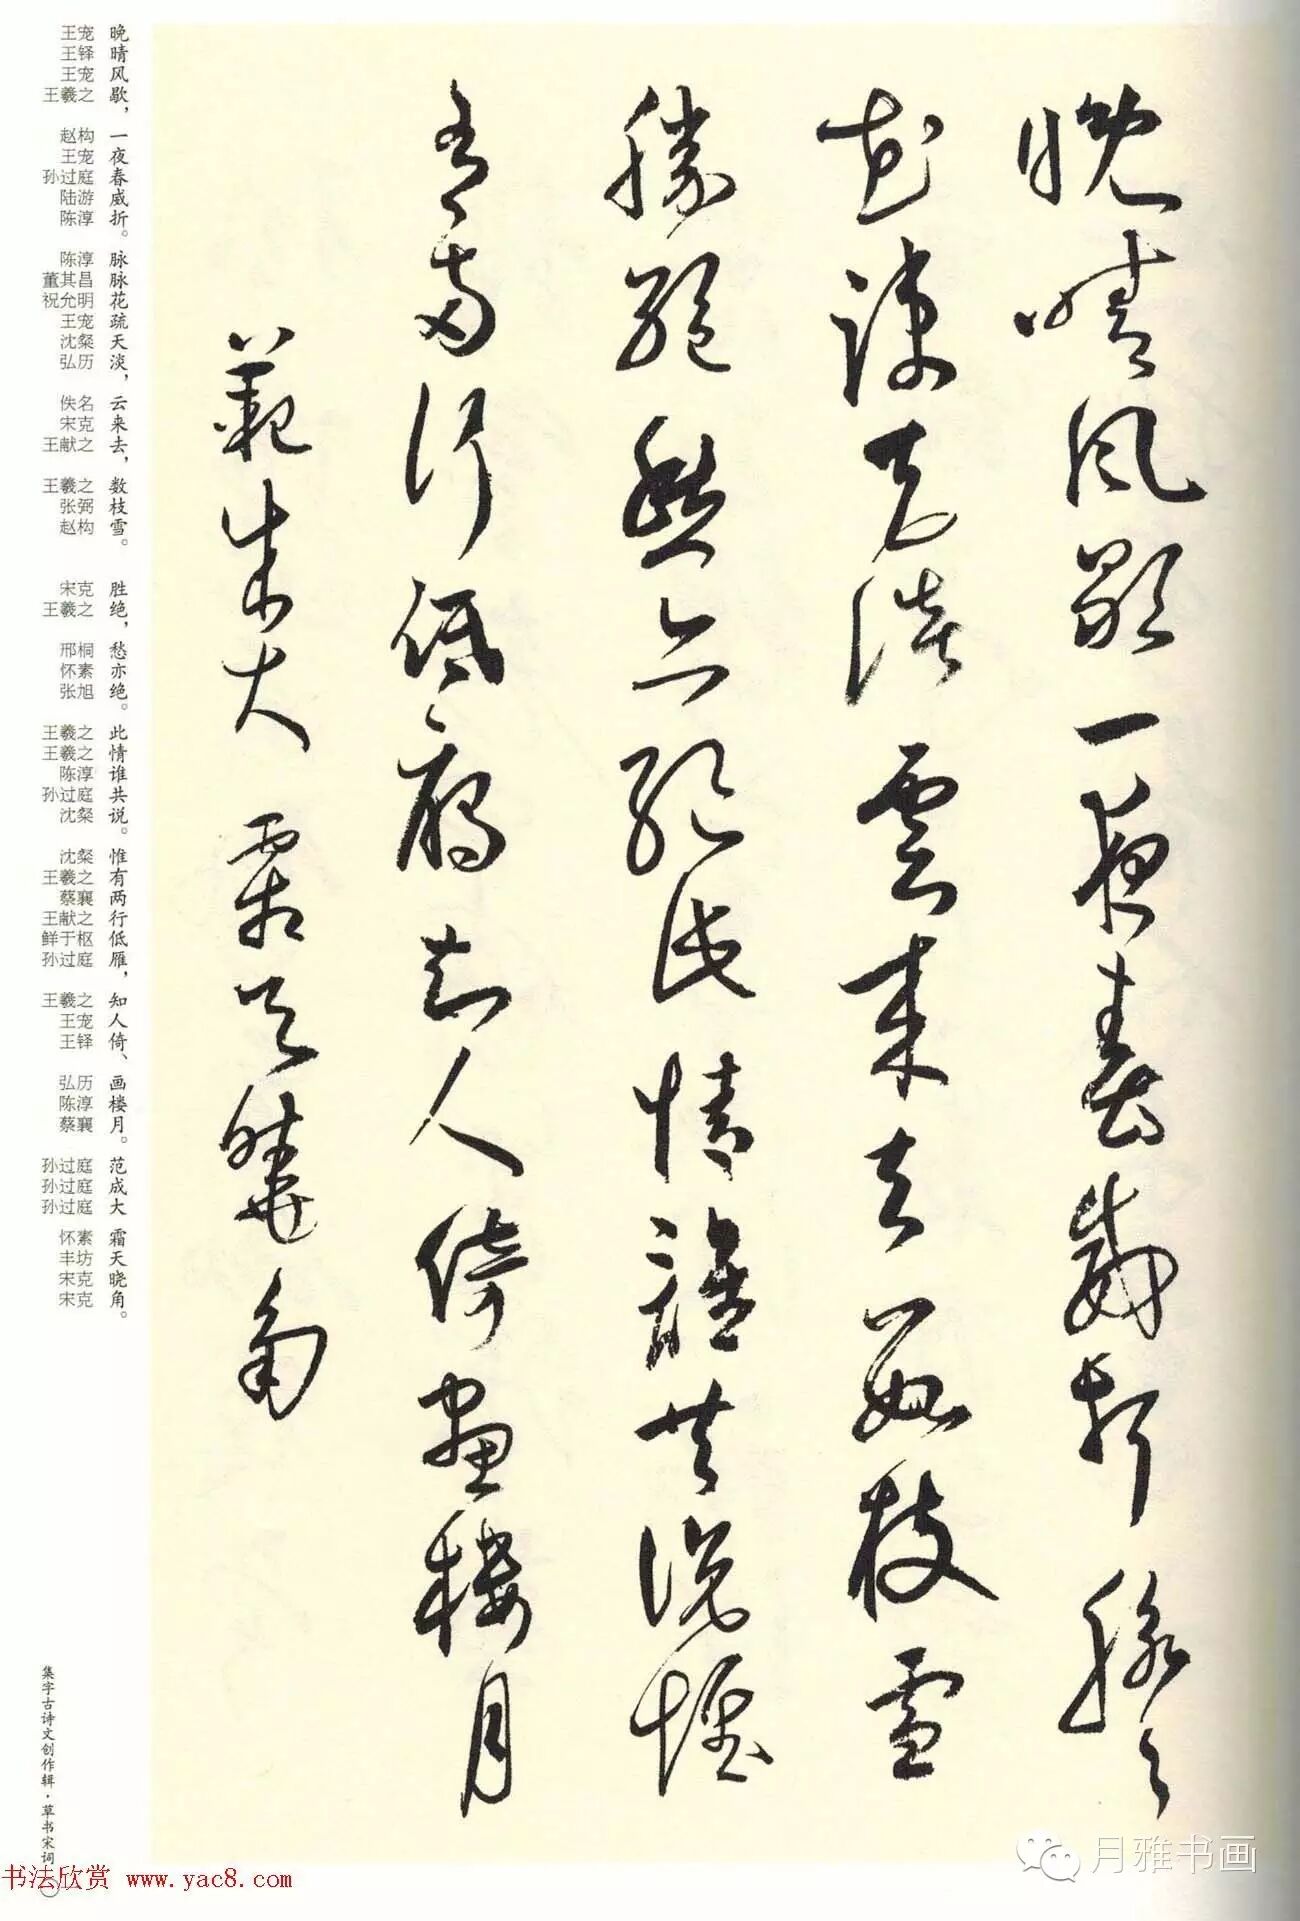 晚晴風歇一夜春威折脉々
花疎天淡雲来去数枝雪
勝絶愁亦絶此情誰共説惟
有两行低雁知人倚畫樓月
范成大 霜天曉角
晚晴风歇，一夜春威折。脉脉花疏天淡，云来去，数枝雪。 胜绝，愁亦绝。此情谁共说。惟有两行低雁，知人倚、画楼月。 范成大 霜天晓角。
王宠 王铎 王宠 王羲之 赵构 王宠 孙过庭 陆游 陈淳 陈淳 董其昌 祝允明 王宠 沈粲 弘历 佚名 宋克 王献之 王羲之 张弼 赵构 宋克 王羲之 邢桐 怀素 张旭 王羲之 王羲之 陈淳 孙过庭 沈粲 沈粲 王羲之 蔡襄 王献之 鲜于枢 孙过庭 王羲之 王宠 王铎 弘历 陈淳 蔡襄 孙过庭 孙过庭 孙过庭 怀素 丰坊 宋克 宋克
集字古诗文创作辑·草书宋词
书法欣赏 www.yac8.com
月雅书画